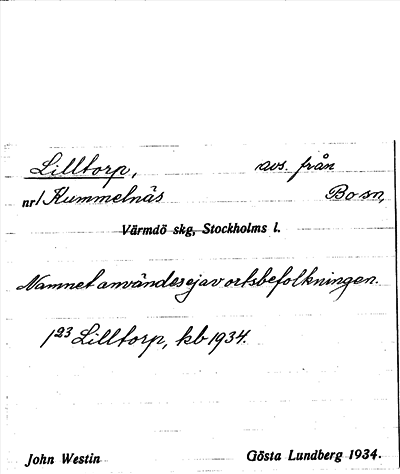 Lilltorp, avs. från
nr 1 Kummelnäs Bo sn,
Värmdö skg, Stockholms l.
Namnet användes ej av ortsbefolkningen.
1 23 Lilltorp, kb 1934.
John Westin Gösta Lundberg 1934.